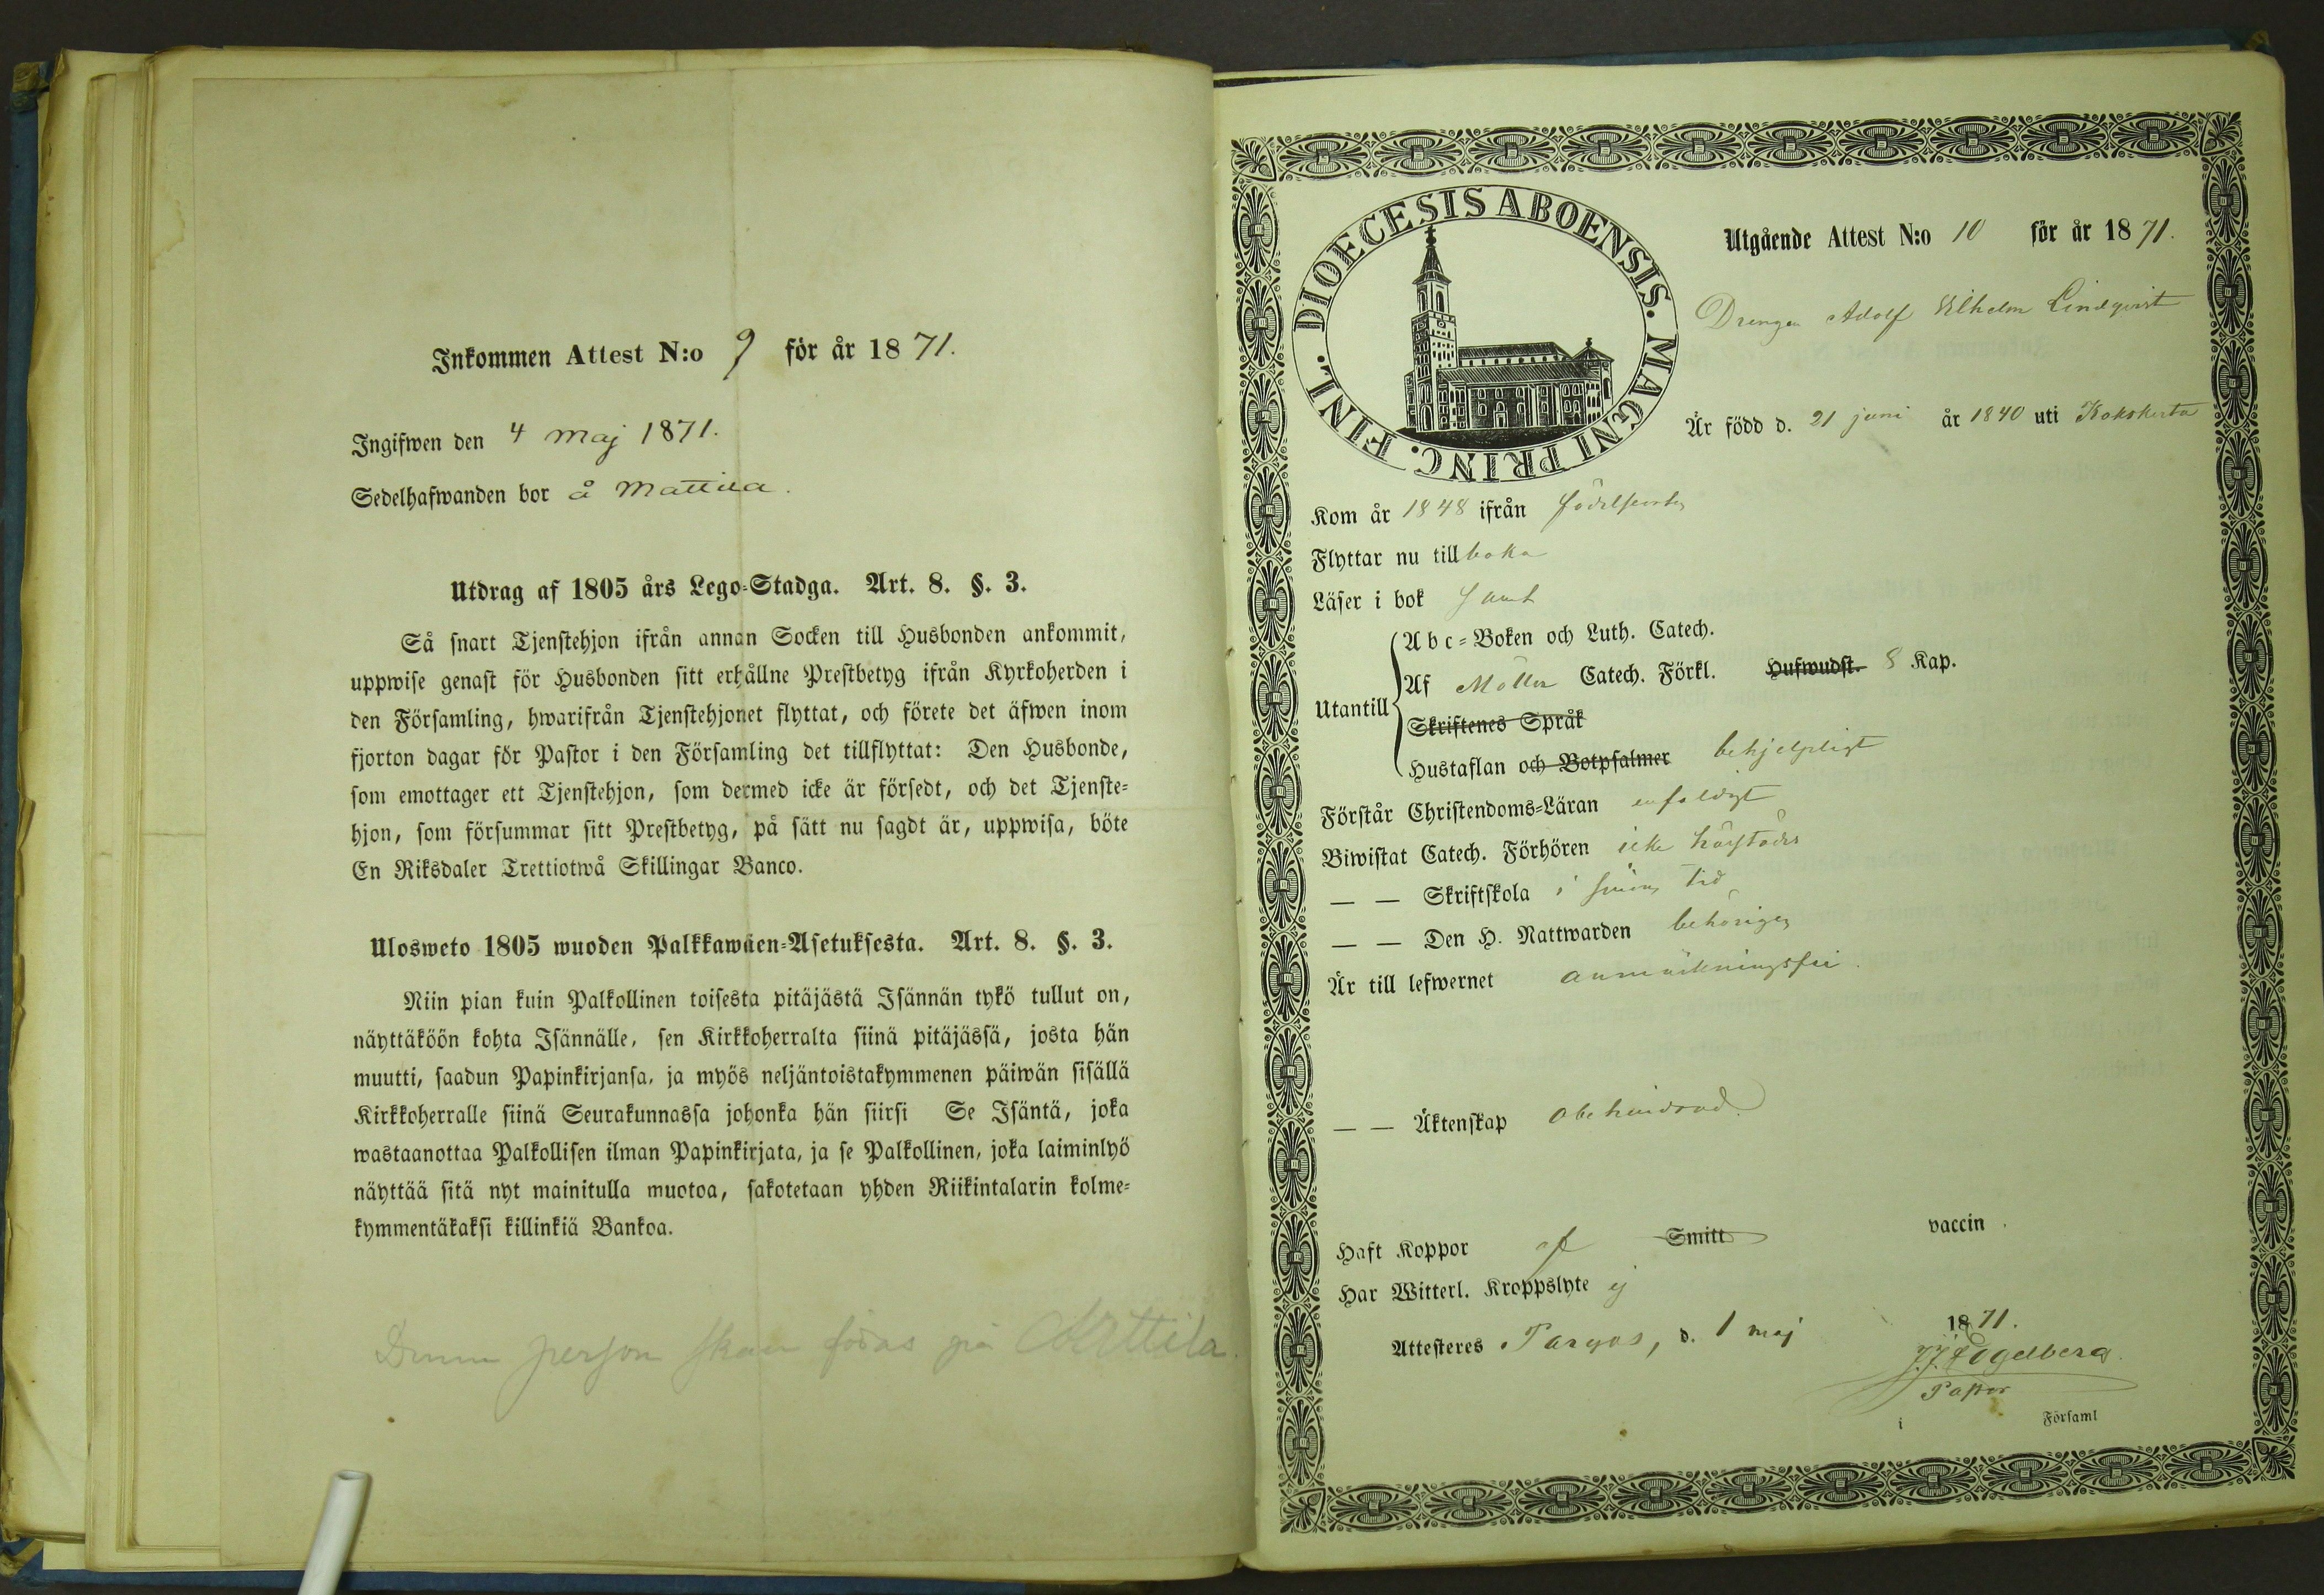 Inkommen Attest N:o 9 för år 1871.
Ingifwen den 4 Maj 1871.
Sedelhafwanden bor å Mattila.
Utdrag af 1805 års Lego-Stadga. Art. 8. §. 3.
Så snart Tjenstehjon ifrån annan Socken till Husbonden ankommit,
uppwise genast för Husbonden sitt erhållne Prestbetyg ifrån Kyrkoherden i
den Församling, hwarifrån Tjenstehjonet flyttat, och förete det äfwen inom
fjorton dagar för Pastor i den Församling det tillflyttat: Den Husbonde,
som emottager ett Tjenstehjon, som dermed icke är försedt, och det Tjenste-
hjon, som försummar sitt Prestbetyg, på sätt nu sagdt är, uppwisa, böte
En Riksdaler Trettiotwå Skillingar Banco.
Ulosweto 1805 wuoden Palkkawäen-Asetuksesta. Art. 8. §. 3.
Niin pian kuin Palkollinen toisesta pitäjästä Isännän tykö tullut on,
näyttäköön kohta Isännälle, sen Kirkkoherralta siinä pitäjässä, josta hän
muutti, saadun Papinkirjansa, ja myös neljäntoistakymmenen päiwän sisällä
Kirkkoherralle siinä Seurakunnassa johonka hän siirsi Se Isäntä, joka
wastaanottaa Palkollisen ilman Papinkirjata, ja se Palkollinen, joka laiminlyö
näyttää sitä nyt mainitulla muotoa, sakotetaan yhden Riikintalarin kolme-
kymmentäkaksi killinkiä Bankoa.
Denna person skall födas på
DIOECESIS ABOENSIS. MAGNI PRINC. FINL.
Utgående Attest N:o 10 för år 1871.
Drengen Adolf Vilhelm Lindqvist
Är född d. 21 juni år 1840 uti Kakskerta
Kom år 1848 ifrån födelseorten
Flyttar nu tillbaka
Läser i bok samt
Utantill
Abc-Boken och Luth. Catech.
Af Möllers Catech. Förkl. Hufwudst. 8 Kap.
Skriftenes Språk
Hustaflan och Botpsalmer behjelpligt
Förstår Christendoms-Läran enfaldigt
Biwistat Catech. Förhören icke härstädes
— — Skriftskola i sinom tid
— — Den H. Nattwarden behörigen
Är till lefwernet anmärkningsfri.
— — Äktenskap obehindrad.
Haft Koppor af Smitt vaccin.
Har Witterl. Kroppslyte ej
Attesteres Pargas, d. 1 maj 1871.
Pastor
i Församl